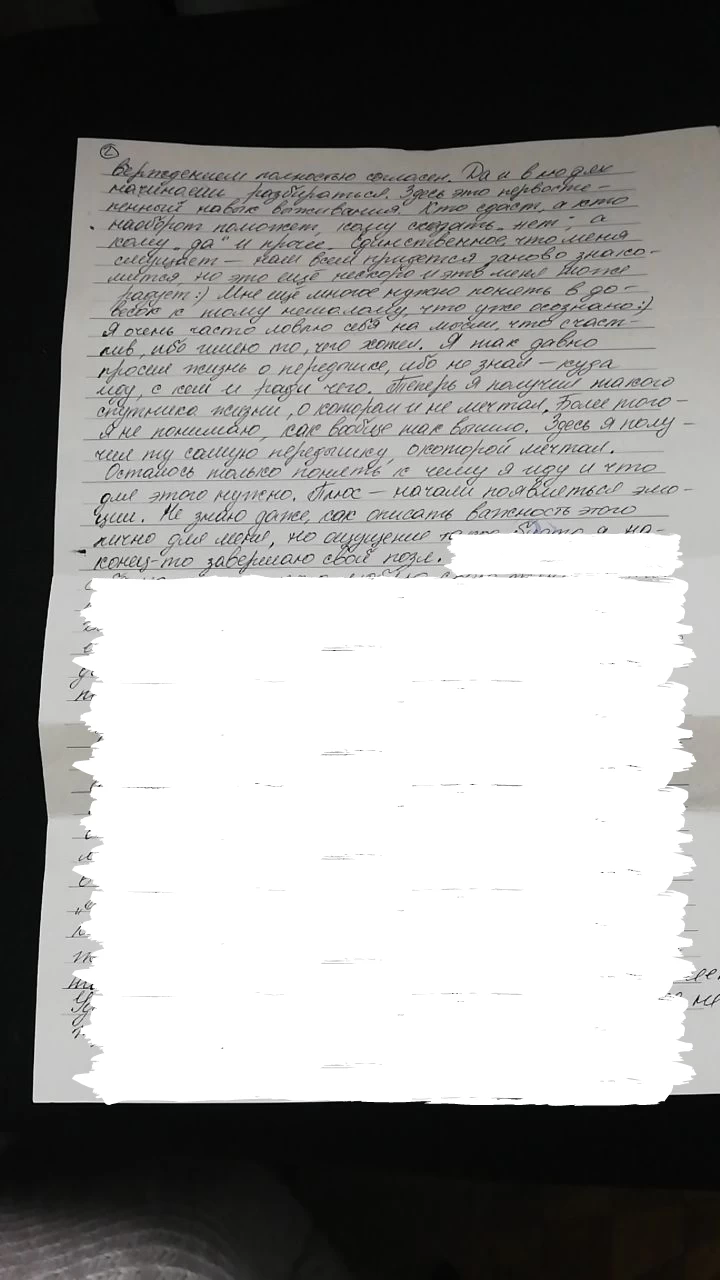 2
верждением полностью согласен. Да и в людях
начинаешь разбираться. Здесь это первосте-
пенный навык выживания. Кто сдаст, а кто
наоборот поможет, кому сказать „нет“, а
кому „да“ и прочее. Единственное, что меня
смущает – нам всем придется заново знако-
мится, но это ещё нескоро и это меня тоже
радует:) Мне ещё многое нужно понять в до-
весок к тому немалому, что уже осознано:)
Я очень часто ловлю себя на мысли, что счаст-
лив, ибо имею то, чего хотел. Я так давно
просил жизнь о передышке, ибо не знал – куда
иду, с кем и ради чего. Теперь я получил такого
спутника жизни, о котором и не мечтал. Более того –
я не понимаю, как вообще так вышло. Здесь я полу-
чил ту самую передышку, о которой мечтал.
Осталось только понять к чему я иду и что
для этого нужно. Плюс – начали появляться эмо-
ции. Не знаю даже, как описать важность этого
лично для меня, но ощущение такое будто я на-
конец-то завершаю свой позл.